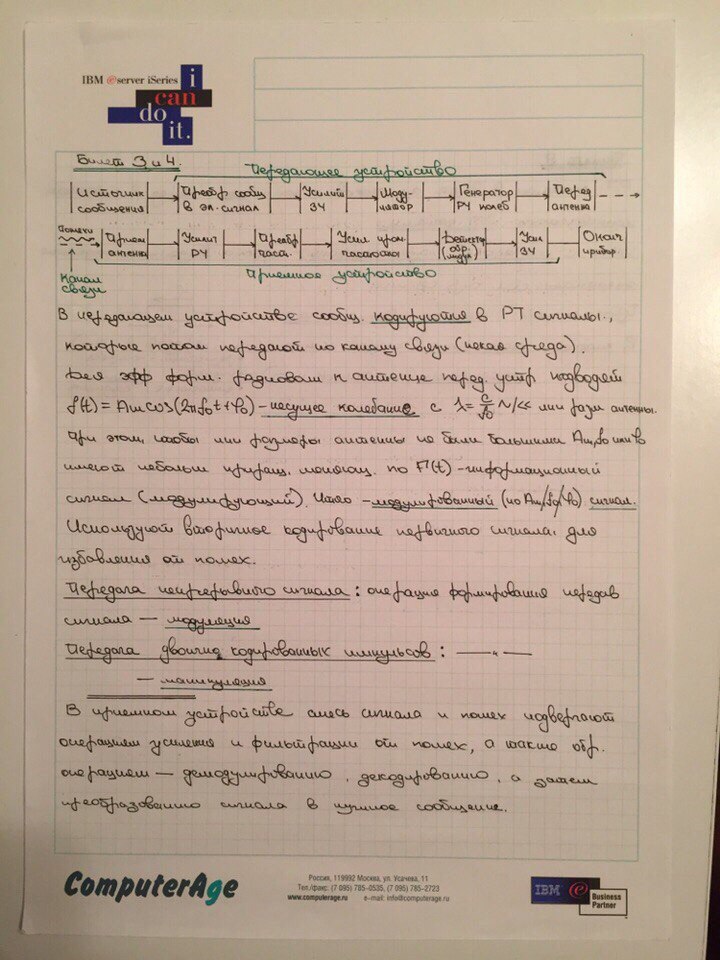 IBM @server iSeries i
can
do
it.
Билет 3 и 4.
Передающее устройство
Источник сообщения Преобр сообщ в эл. сигнал Усилит ЗЧ Моду- лятор Генератор РЧ колеб Перед антенна
Помехи Прием антенна Усилит РЧ Преобр част. Усил пром. частоты Детектор обр. (модул) Усил ЗЧ Оконч прибор
Канал связи
Приемное устройство
В передающем устройстве сообщ. кодируются в РТ сигналы.,
которые потом передают по каналу связи (некая среда).
Для эфф форм. радиоволн к антенне перед. устр подводят
f(t) = Am cos(2πf₀t+φ₀) – несущее колебание с λ = c/f₀ ~/<< лин разм антенны.
При этом, чтобы лин размеры антенны не были большими Am, f₀ или φ₀
имеют небольш приращ. меняющ. по П(t) – информационный
сигнал (модулирующий). Итого – модулированный (по Am/f₀/φ₀) сигнал.
Используют вторичное кодирование первичного сигнала для
избавления от помех.
Передача непрерывного сигнала: операция формирования передав
сигнала — модуляция
Передача двоично кодированных импульсов: —— " ——
— манипуляция
В приемном устройстве смесь сигнала и помех подвергают
операциям усиления и фильтрации от помех, а также обр.
операциям — демодулированию, декодированию, а затем
преобразованию сигнала в нужное сообщение.
ComputerAge
Россия, 119992 Москва, ул. Усачева, 11
Тел./факс: (7 095) 785-0535, (7 095) 785-2723
www.computerage.ru e-mail: info@computerage.ru
IBM @ Business Partner